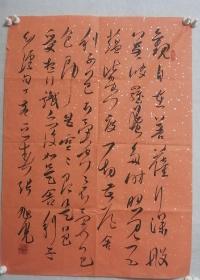 觀自在菩薩行深般
若波羅蜜多時照見五
蘊皆空度一切苦厄舍
利子色不異空空不異色
色即是空空即是色
受想行識亦復如是舍利子
心經句丁亥